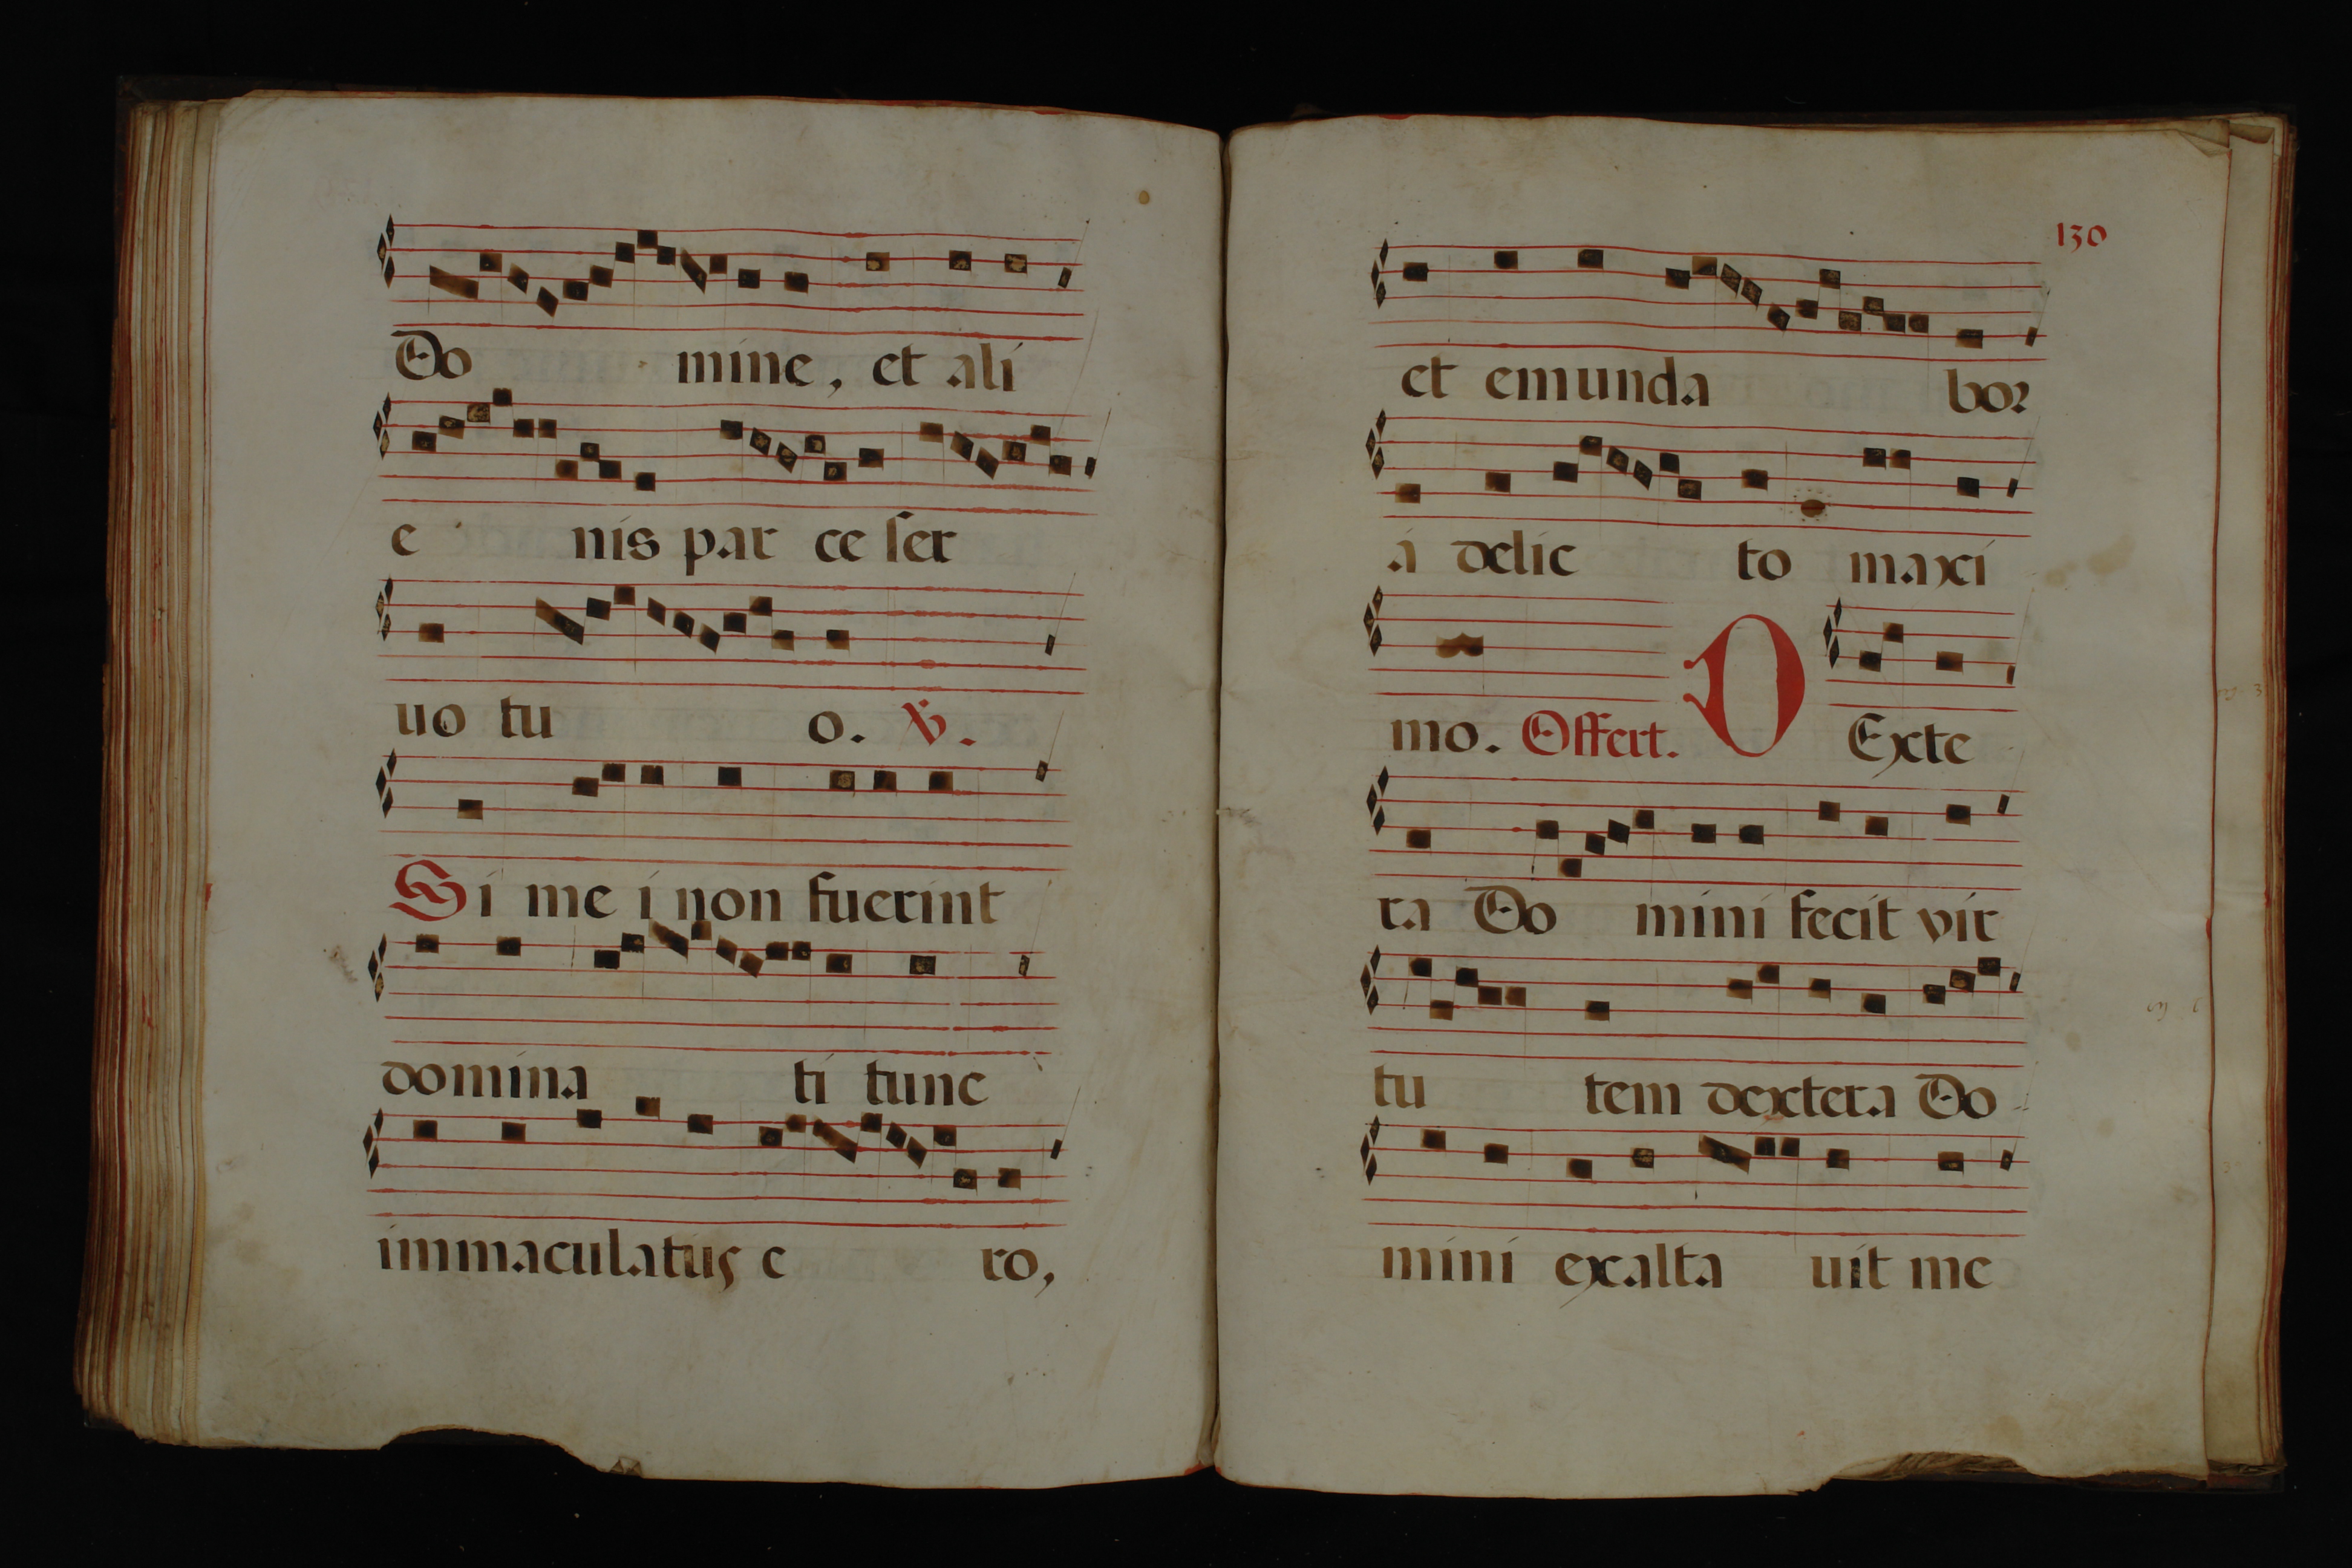 Do mine, et ali
e nis par ce ser
uo tu o. ℣.
Si me i non fuerint
domina ti tunc
immaculatus e ro,
130
et emunda bor
a delic to maxi
mo. Offert. D Exte
ra Do mini fecit vir
tu tem dextera Do
mini exalta uit me